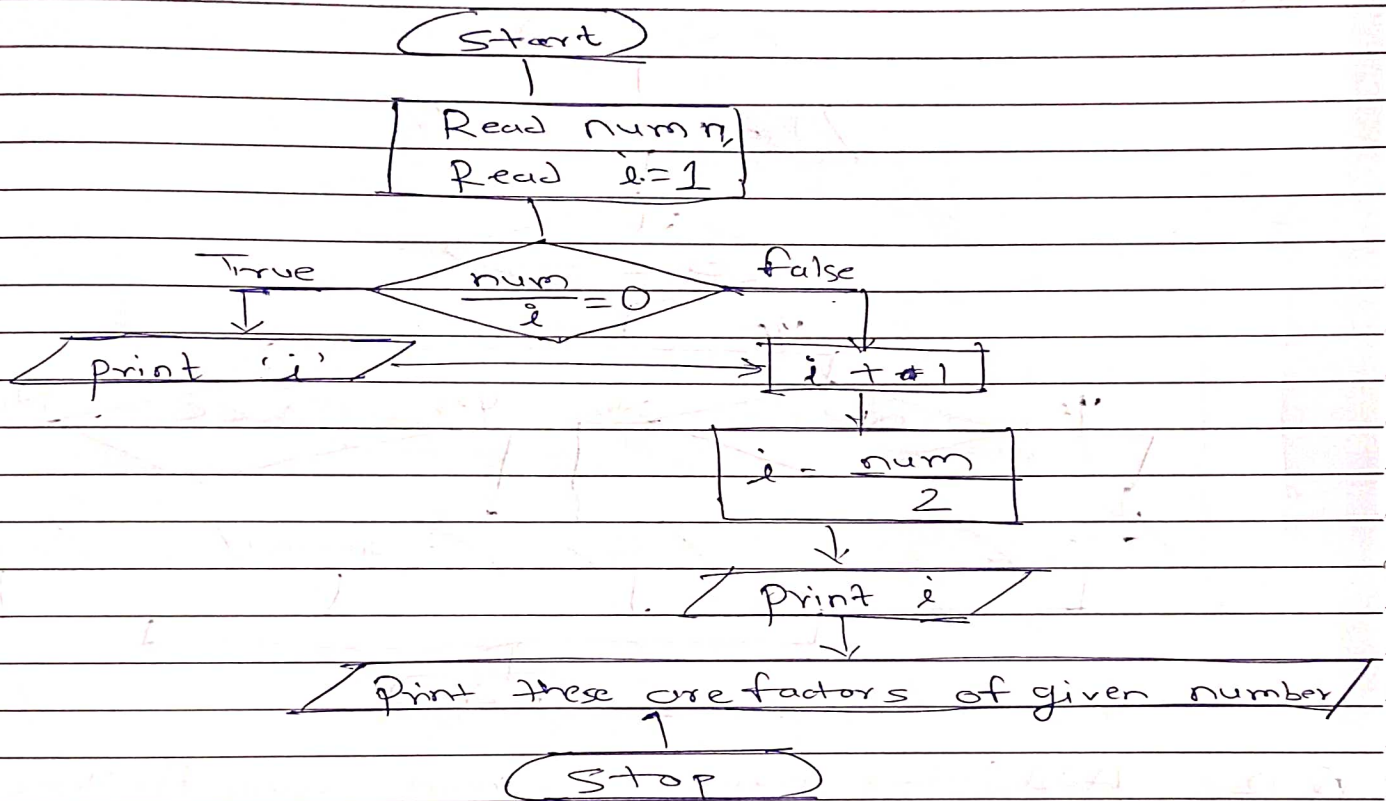 Start
Read num n,
Read i=1
True
num
i
= 0
false
print 'i'
i + 1
i - num
2
print i
Print these are factors of given number
Stop